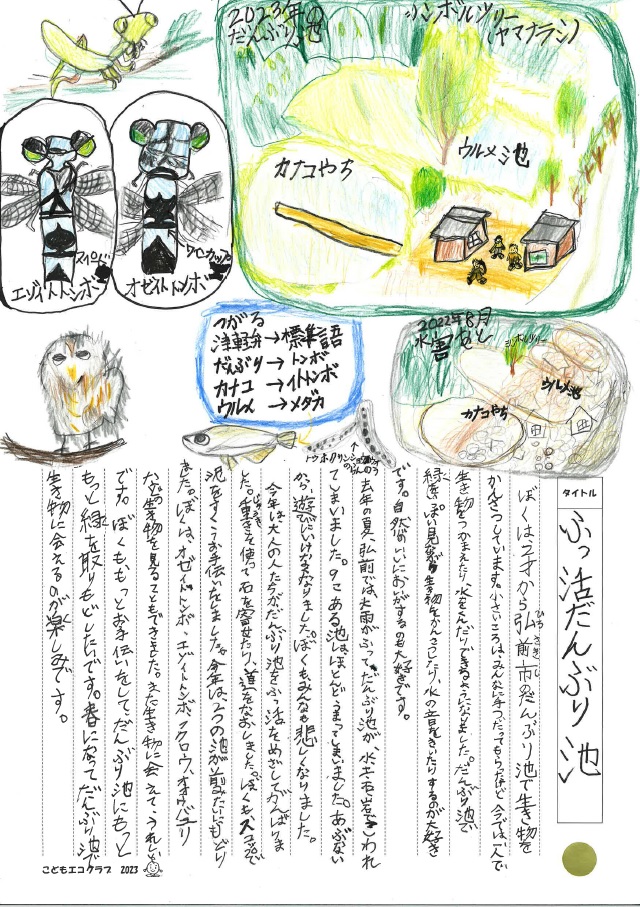 2023年
だんぶり池
シンボルツリー
(ヤマナラシ)
カナコやち
ウルメ池
スペード
エゾイトトンボ
ワイングラス
オゼイトトンボ
つがる
津軽弁→標準語
だんぶり→トンボ
カナコ→イトトンボ
ウルメ→メダカ
2022年8月
水害なし
シンボルツリー
ウルメ池
カナコやち
トウホクサンショウウオ
のらんのう
タイトル
ふっ活だんぶり池
ぼくは2才から弘前市のだんぶり池で生き物を
ひろさきし
かんさつしています。小さいころはみんなに手つだってもらったけど今では一人で
生き物をつかまえたり、水をくんだりできるようになりました。だんぶり池で
緑をいっぱい見ながら生き物をかんさつしたり、水の音をきいたりするのが大好き
です。自然のいいにおいがするのも大好きです。
去年の夏、弘前では大雨がふって、だんぶり池が、水や土や岩でこわれ
てしまいました。9こある池はほとんどうまってしまいました。あぶない
から遊びにいけなくなりました。ぼくもみんなも悲しくなりました。
今年は大人の人たちがだんぶり池をふっ活をめざしてがんばりま
した。重きを使って石を寄せたり、道をなおしました。ぼくも、スコップで
じゅうき
泥をすくうお手伝いをしました。今年は2つの池が前みたいにもどり
ました。ぼくは、オゼイトトンボ、エゾイトトンボ、フクロウ、オオカマキリ
などの生き物を見ることもできました。また生き物に会えて、うれしい
です。ぼくももっとお手伝いをしてだんぶり池にもっと
もっと緑を取りもどしたいです。春になってだんぶり池で
生き物に会えるのが楽しみです。
こどもエコクラブ 2023